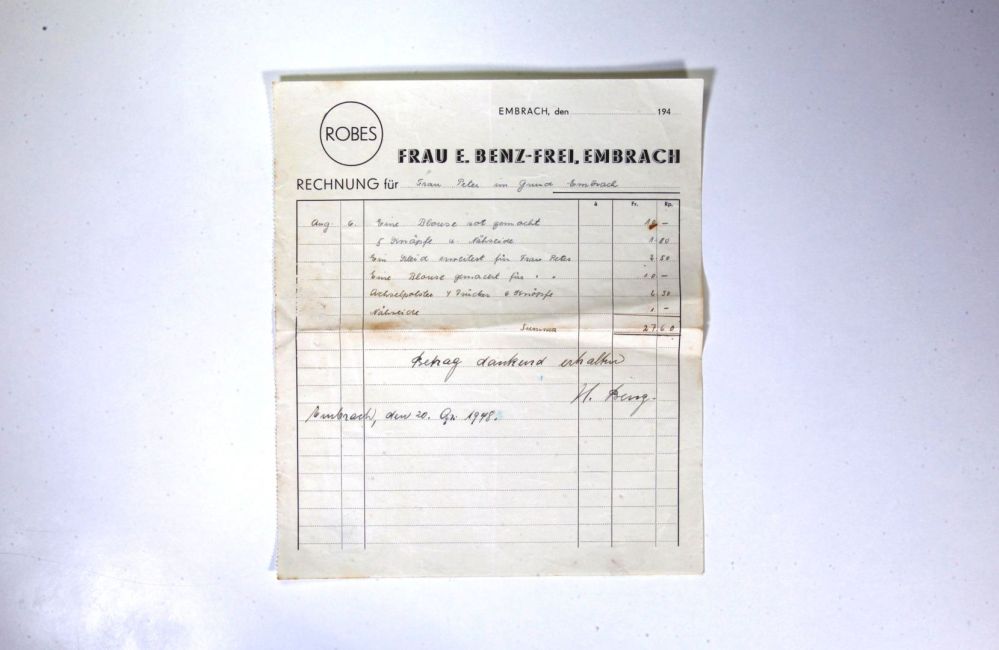 EMBRACH, den 194
ROBES
FRAU E. BENZ-FREI, EMBRACH
RECHNUNG für Frau Peter im Grund Embrach
à Fr. Rp.
Aug. 6. Eine Blouse rot gemacht –
5 Knöpfe u. Nähseide 1.80
Ein Kleid erweitert für Frau Peter 2 50
Eine Blouse gemacht für " " 10 –
Achselpolster 4 Drücker 6 Knöpfe 30
Nähseide 1 –
Summa 27.60
Betrag dankend erhalten
Embrach, den 20. 1948.